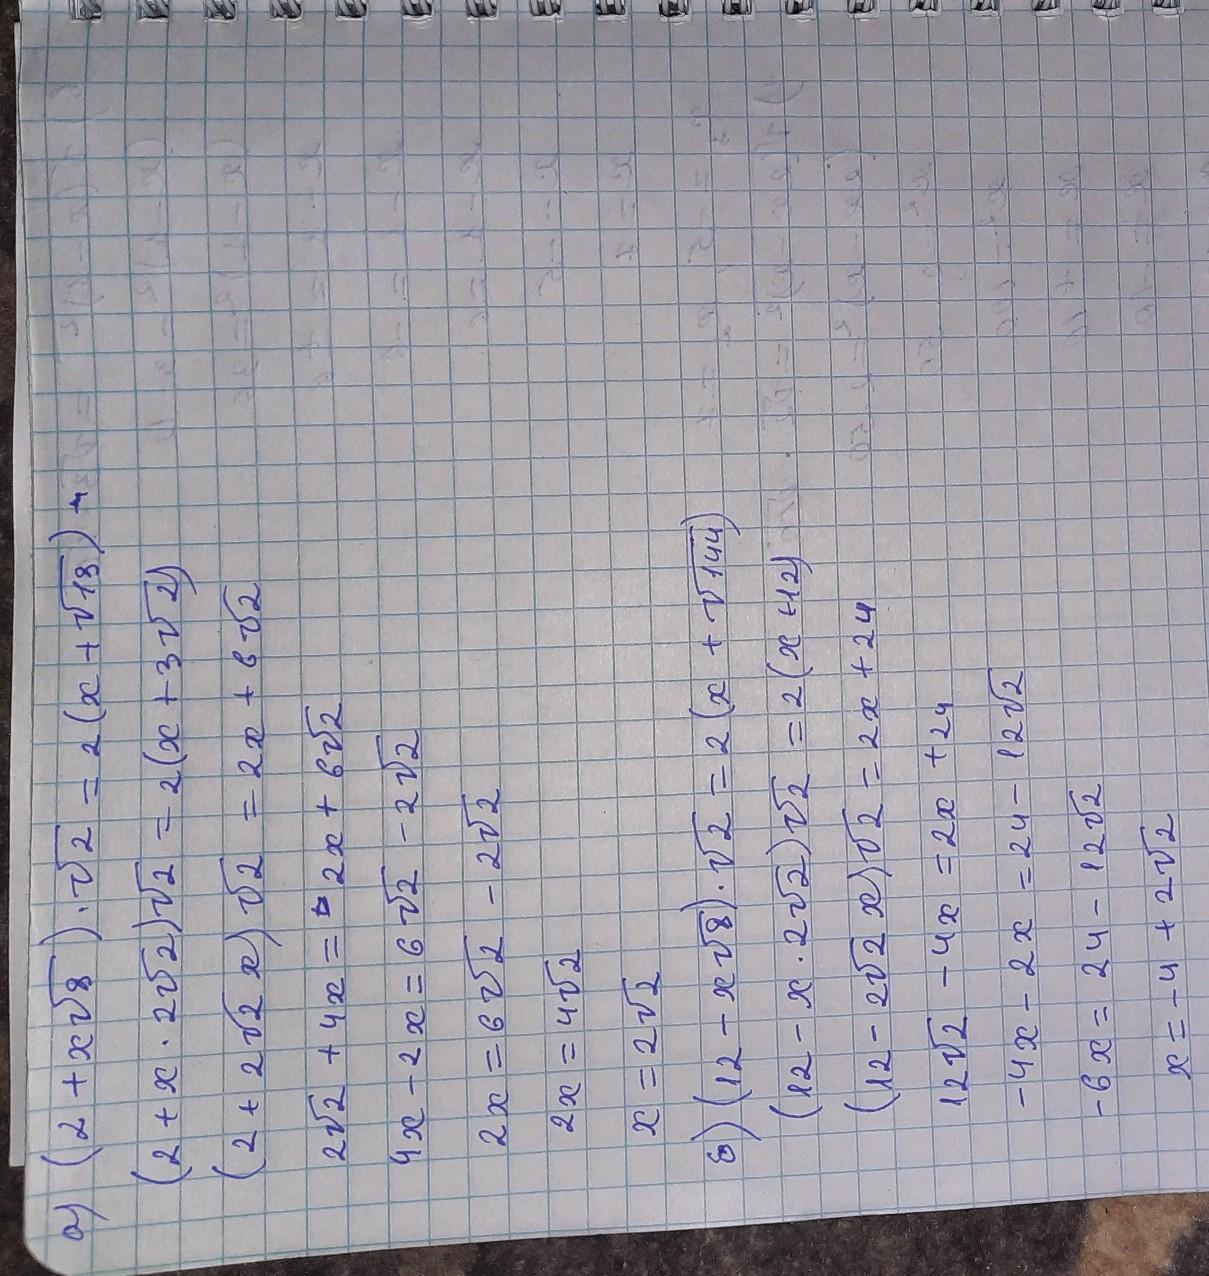 а) (2 + x√8) · √2 = 2(x + √18)
(2 + x · 2√2)√2 = 2(x + 3√2)
(2 + 2√2 x)√2 = 2x + 6√2
2√2 + 4x = 2x + 6√2
4x - 2x = 6√2 - 2√2
2x = 6√2 - 2√2
2x = 4√2
x = 2√2
в) (12 - x√8) · √2 = 2(x + √144)
(12 - x · 2√2)√2 = 2(x + 12)
(12 - 2√2 x)√2 = 2x + 24
12√2 - 4x = 2x + 24
-4x - 2x = 24 - 12√2
-6x = 24 - 12√2
x = -4 + 2√2